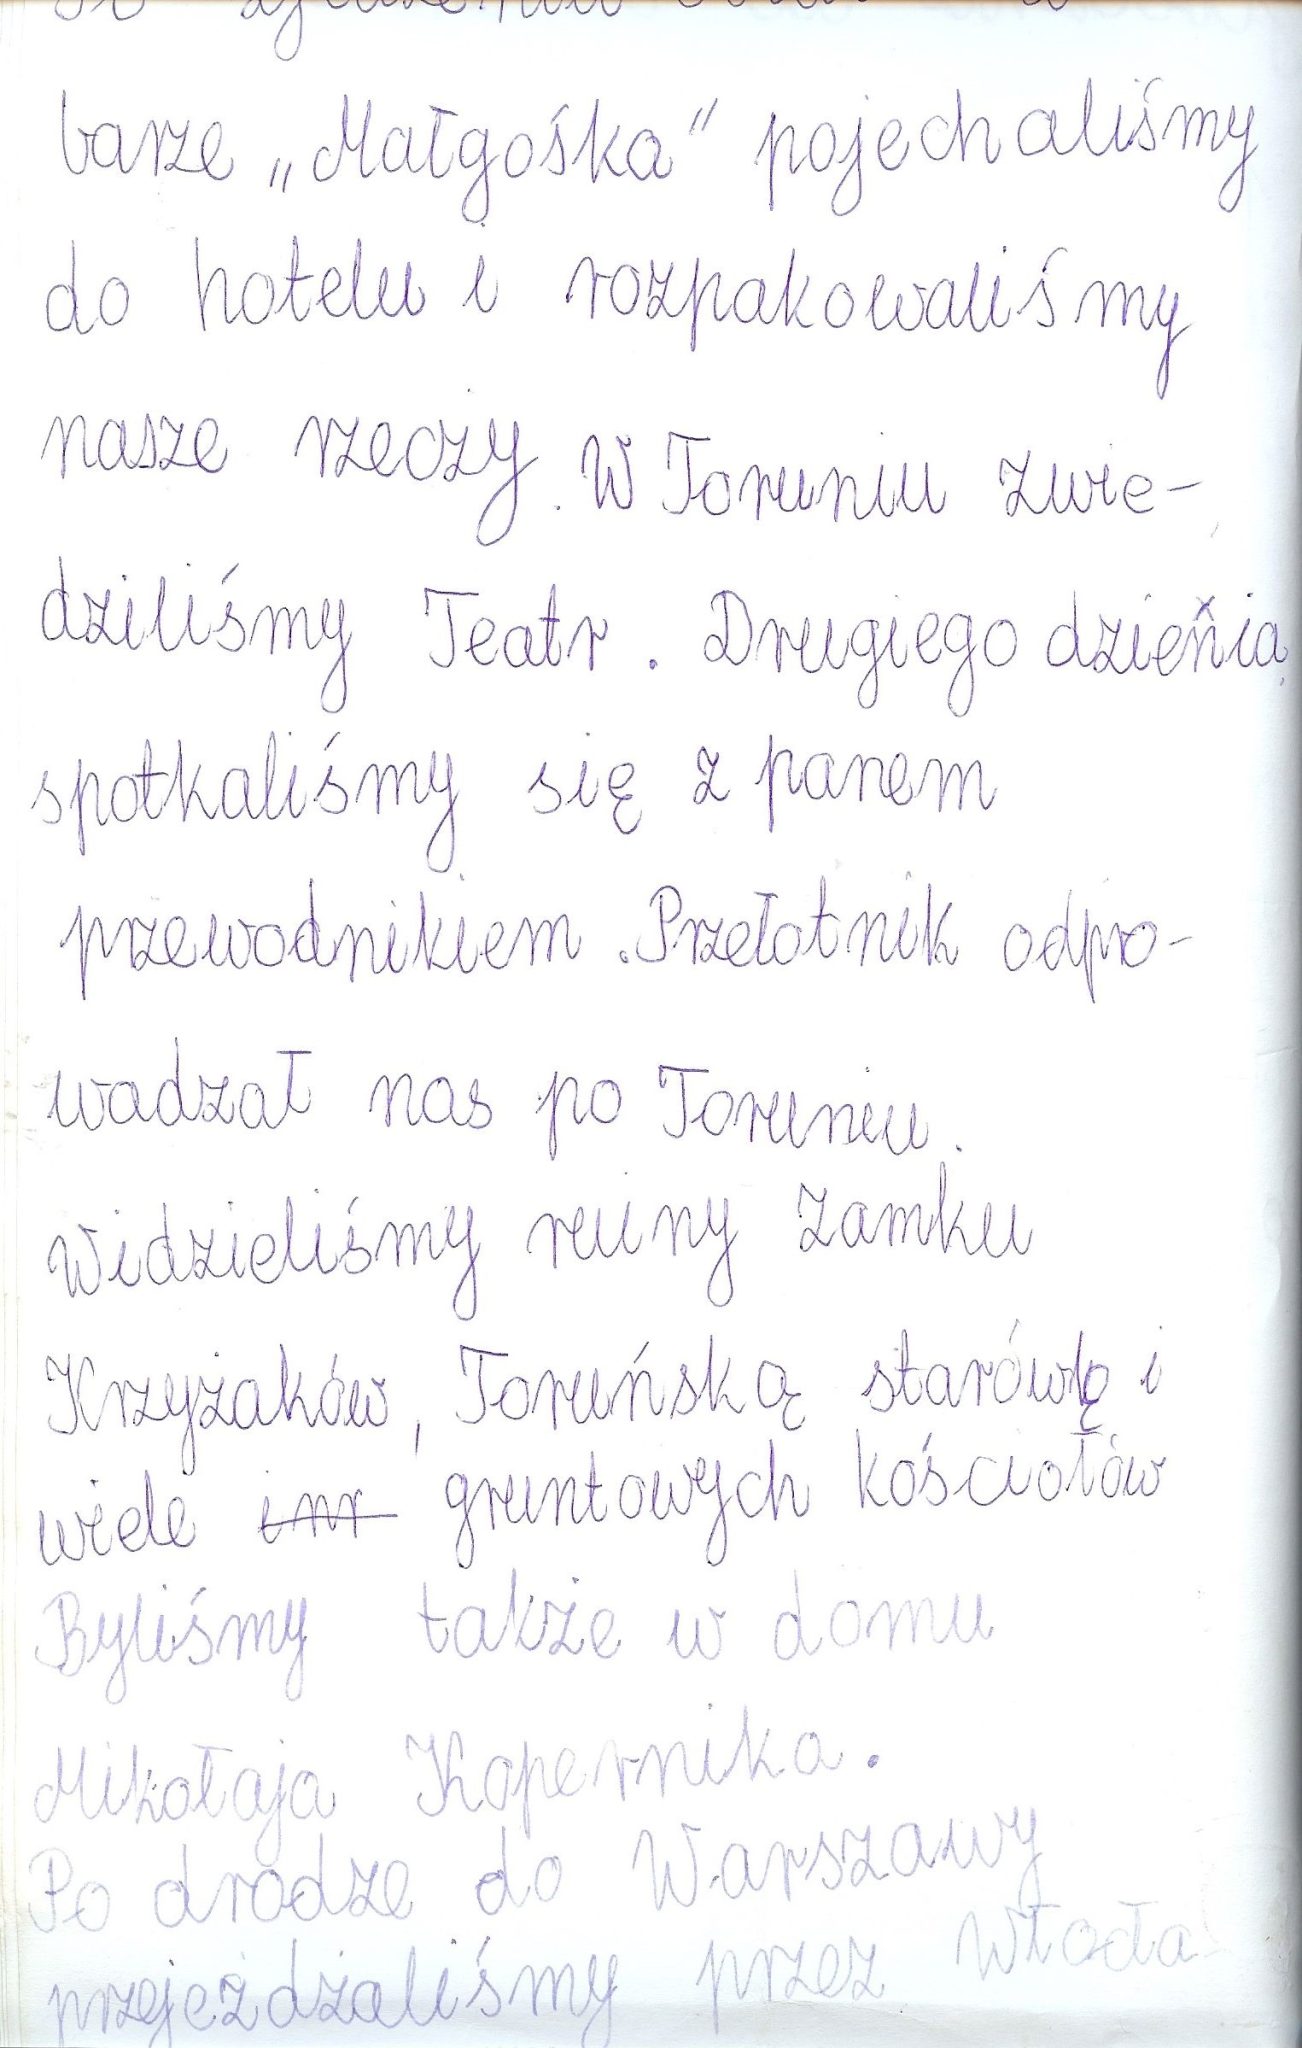 barze „Małgośka” pojechaliśmy
do hotelu i rozpakowaliśmy
nasze rzeczy. W Toruniu zwie-
dziliśmy Teatr. Drugiego dzieńia
spotkaliśmy się z panem
przewodnikiem. Przełotnik odpro-
wadzał nas po Toruniu.
Widzieliśmy ruiny zamku
Krzyżaków, Toruńską starówkę i
wiele inr gruntowych kościołów
Byliśmy także w domu
Mikołaja Kopernika.
Po drodze do Warszawy
przejeżdżaliśmy przez Włoda